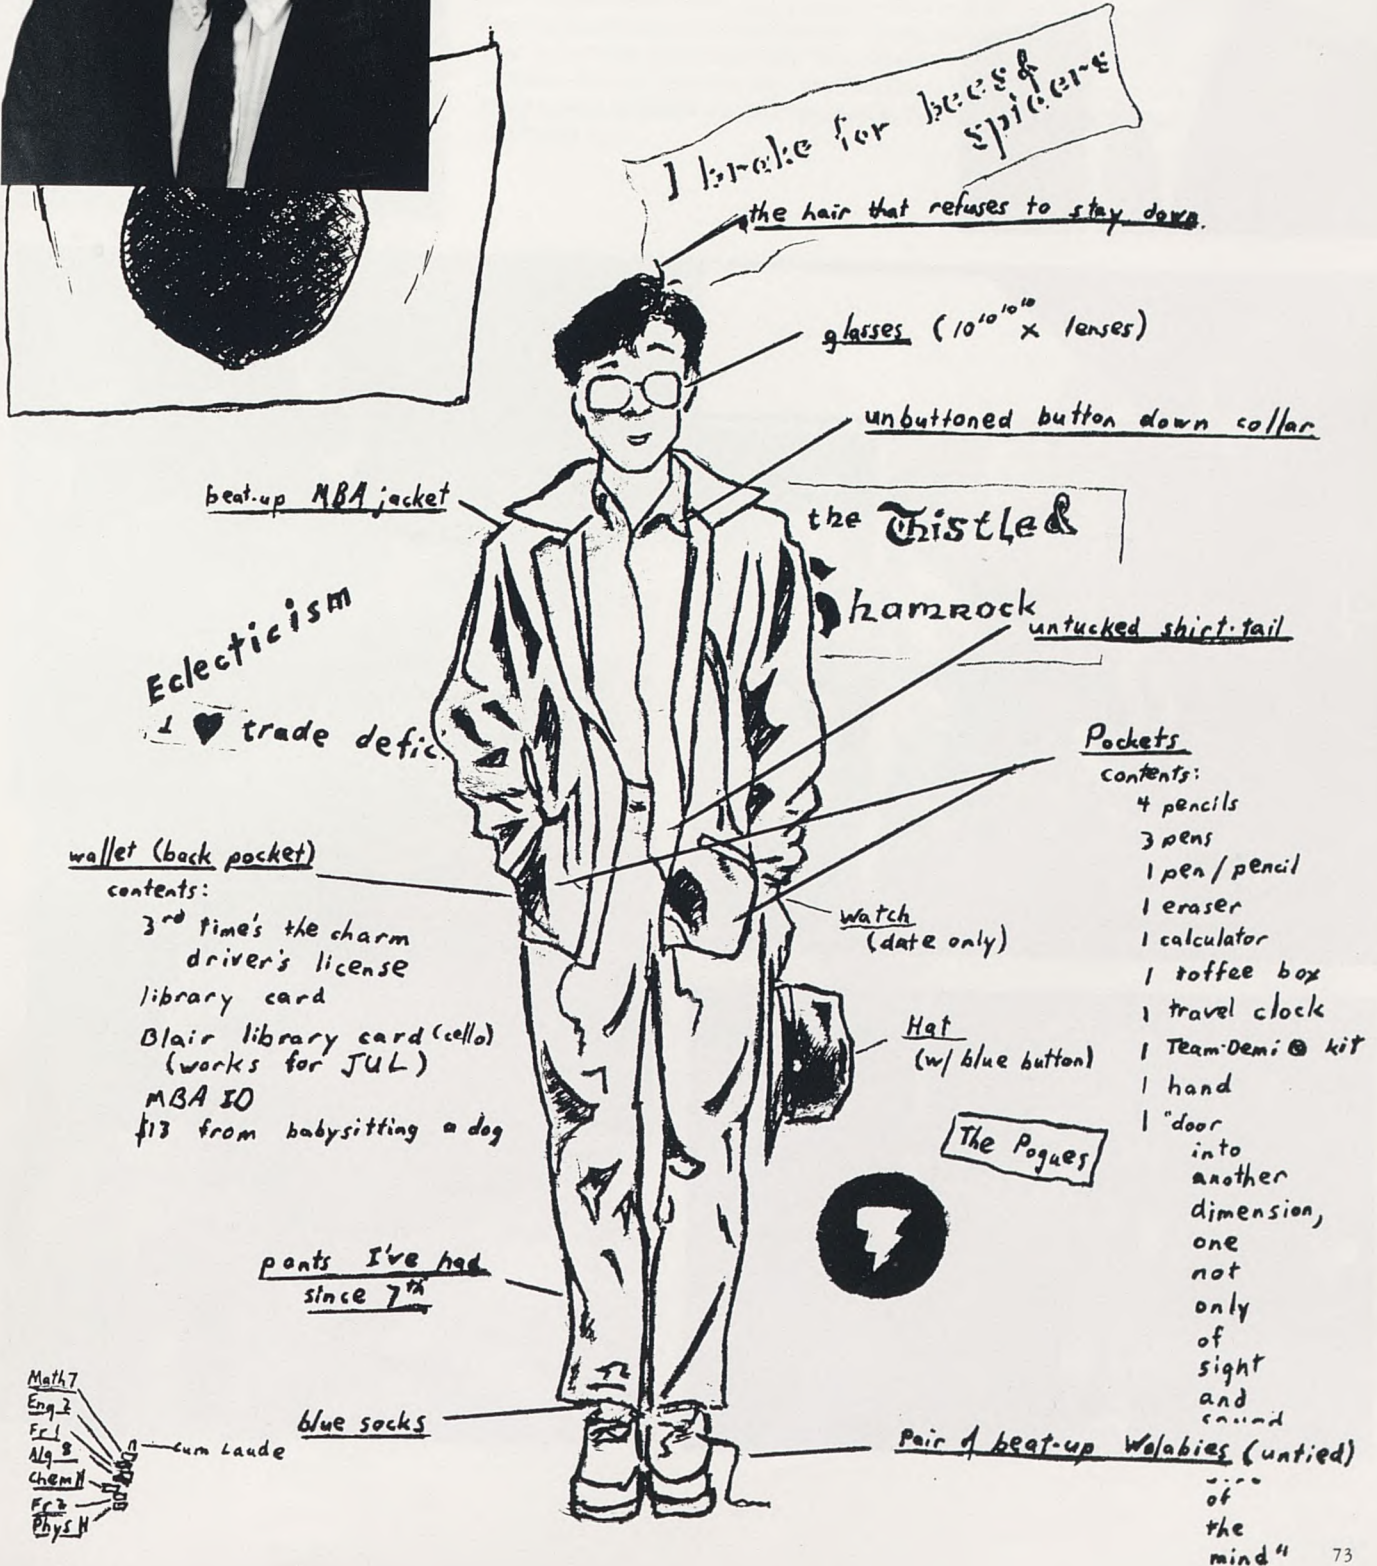 I brake for bees &
spicers
the hair that refuses to stay down.
glasses (10^10^10^10 x lenses)
unbuttoned button down collar
beat-up MBA jacket
the Thistle &
Shamrock
untucked shirt-tail
Eclecticism
I ♥ trade defic
Pockets
contents:
4 pencils
3 pens
1 pen/pencil
1 eraser
1 calculator
1 toffee box
1 travel clock
1 Team-Demi kit
1 hand
1 "door
into
another
dimension,
one
not
only
of
sight
and
sound
of
the
mind"
wallet (back pocket)
contents:
3rd time's the charm
driver's license
library card
Blair library card (cello)
(works for JUL)
MBA ID
$13 from babysitting a dog
watch
(date only)
Hat
(w/ blue button)
The Pogues
pants I've had
since 7th
blue socks
Pair of beat-up Walabies (untied)
Math 7
Eng 2
Fr 1
Alg 8
Chem H
Fr 2
Phys H
Cum Laude
73